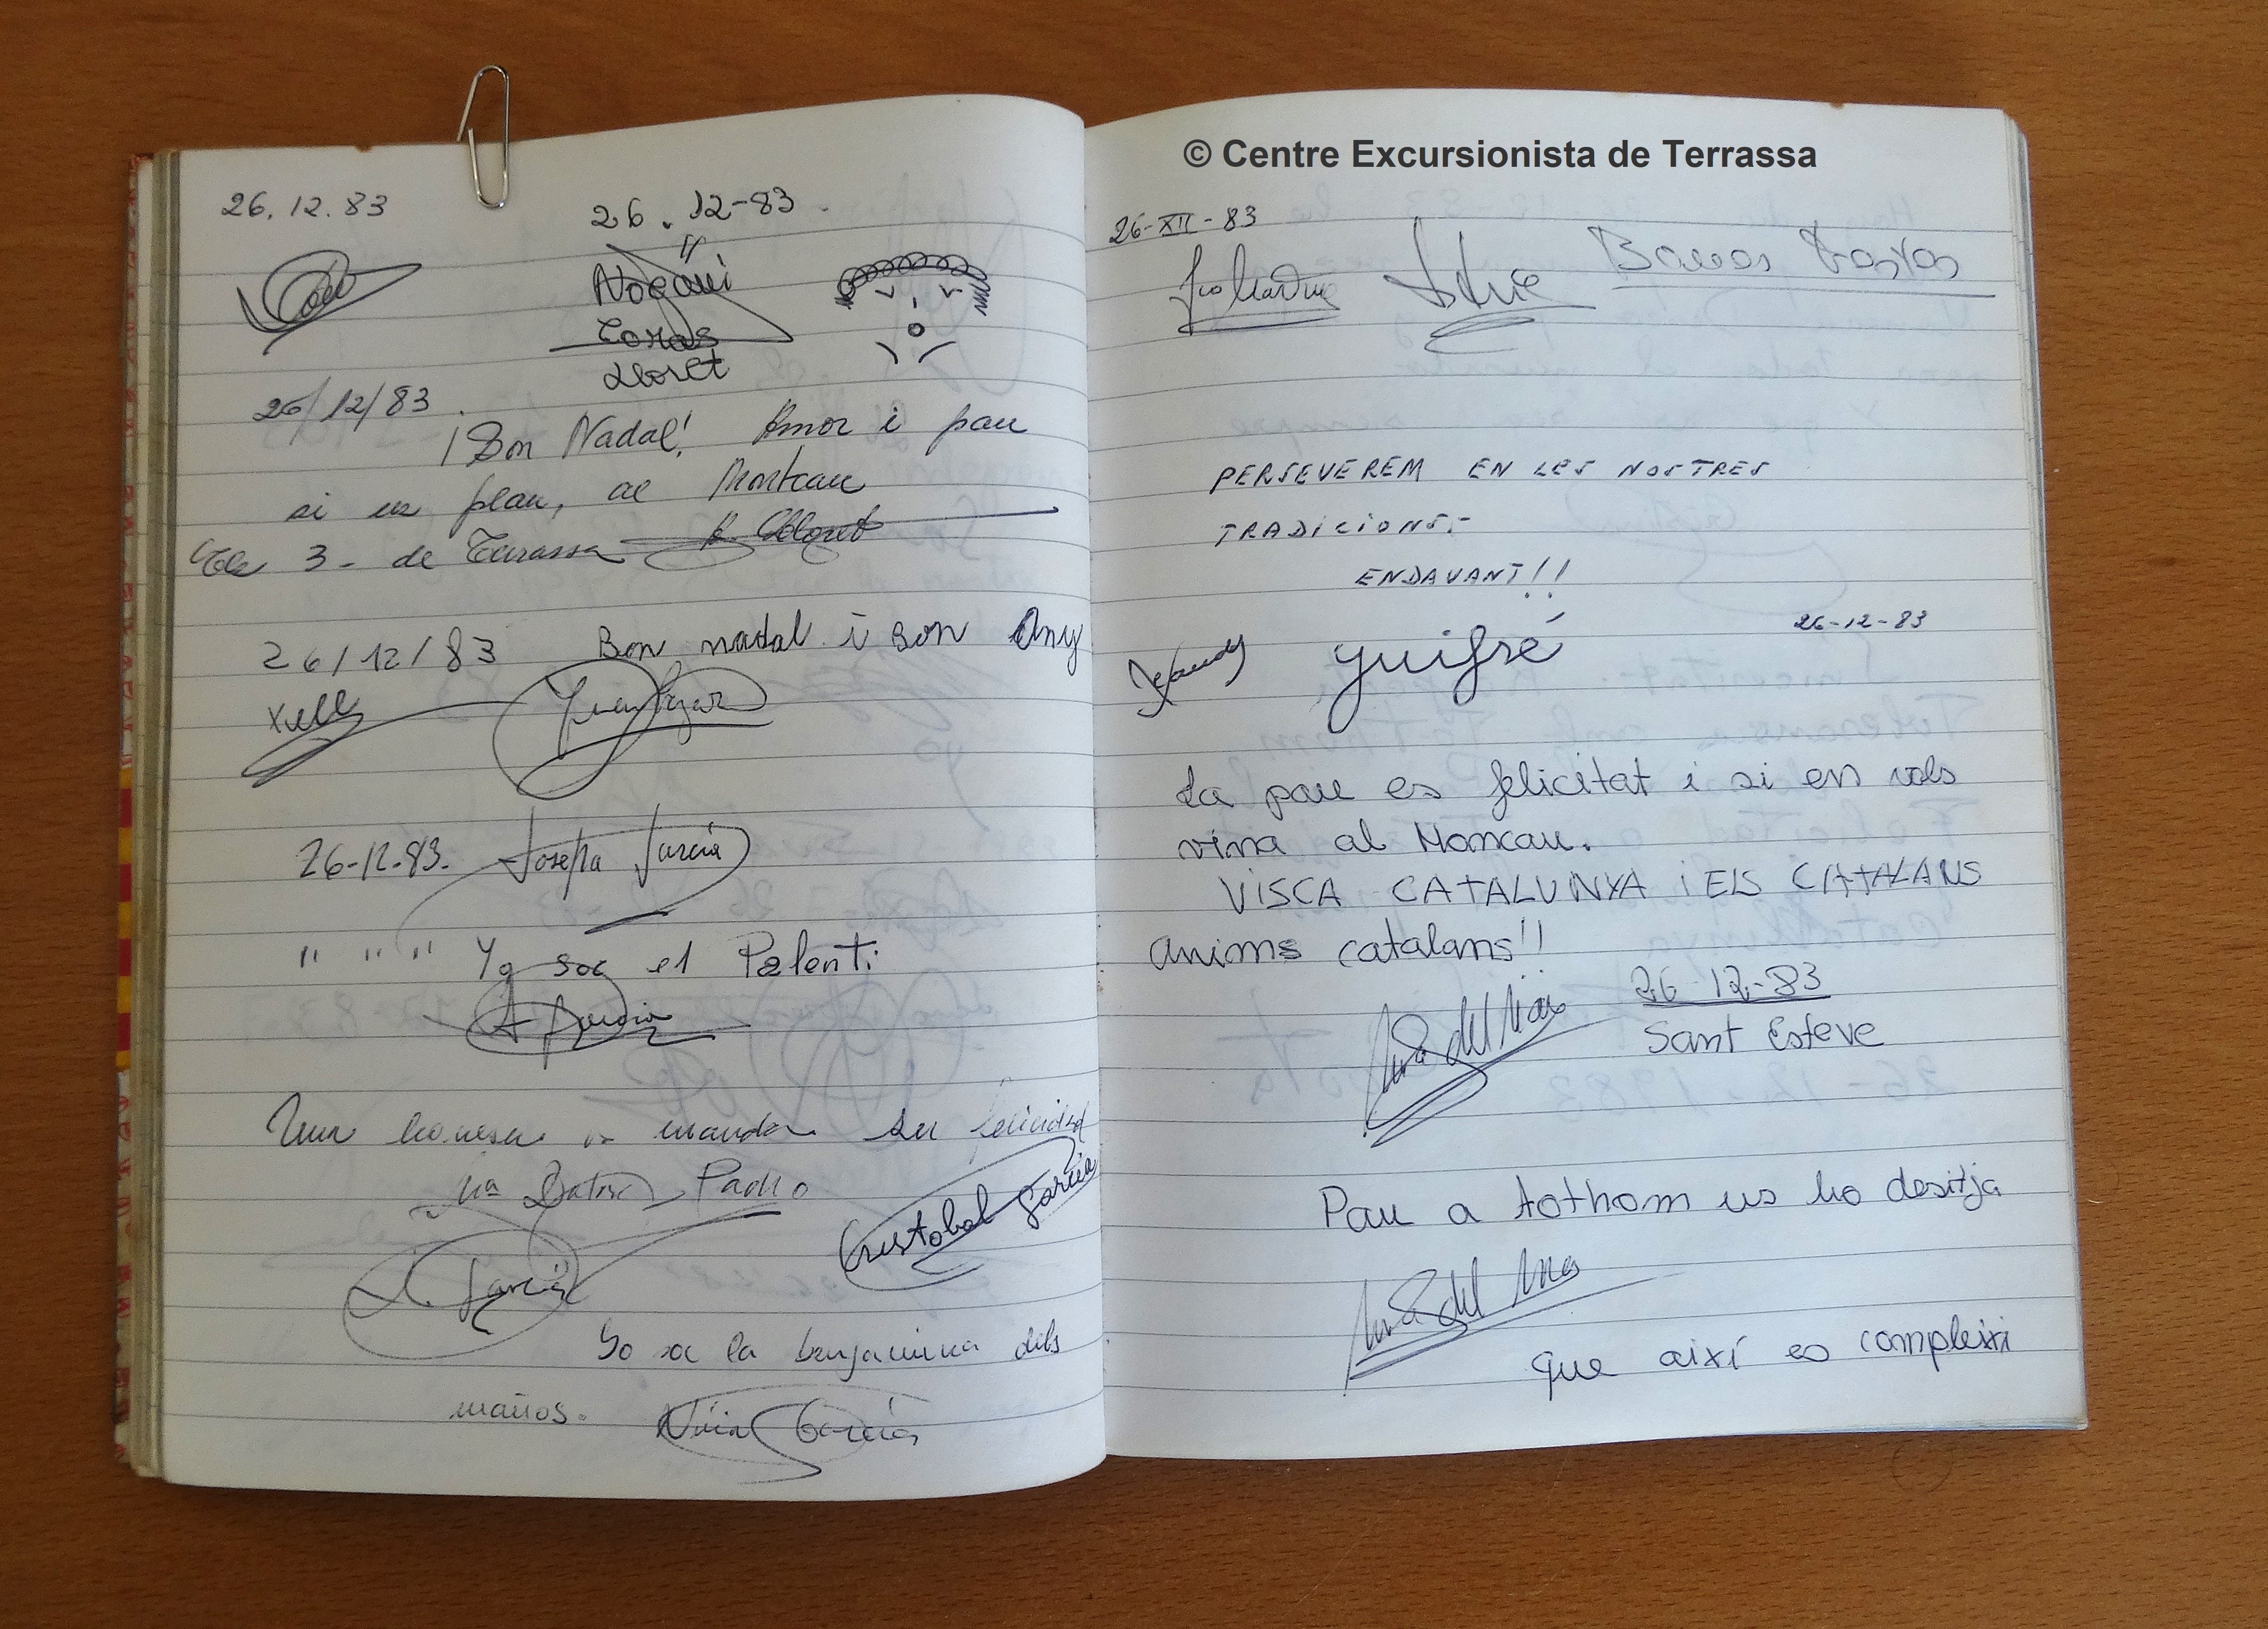 26.12.83
26.12-83.
Toras
Lloret
26/12/83.
¡Bon Nadal! Amor i pau
si us plau, al Montcau
3- de Terrassa
26/12/83 Bon nadal i bon Any
Xell
26-12-83. Josepa García
" " " Yo soc el Palenti
A García
os manda su felicidad
Mª Padro
Cristobal García
García
Yo soc la benjamina dels
maños. Núria García
© Centre Excursionista de Terrassa
26-XII-83
PERSEVEREM EN LES NOSTRES
TRADICIONS.-
ENDAVANT!!
26-12-83
guifré
La pau es felicitat i si en vols
vina al Moncau.
VISCA CATALUNYA i ELS CATALANS
anims catalans!!
26-12-83
Sant Esteve
Mª del Mar
Pau a tothom us ho desitja
Mª del Mar
que així es compleixi